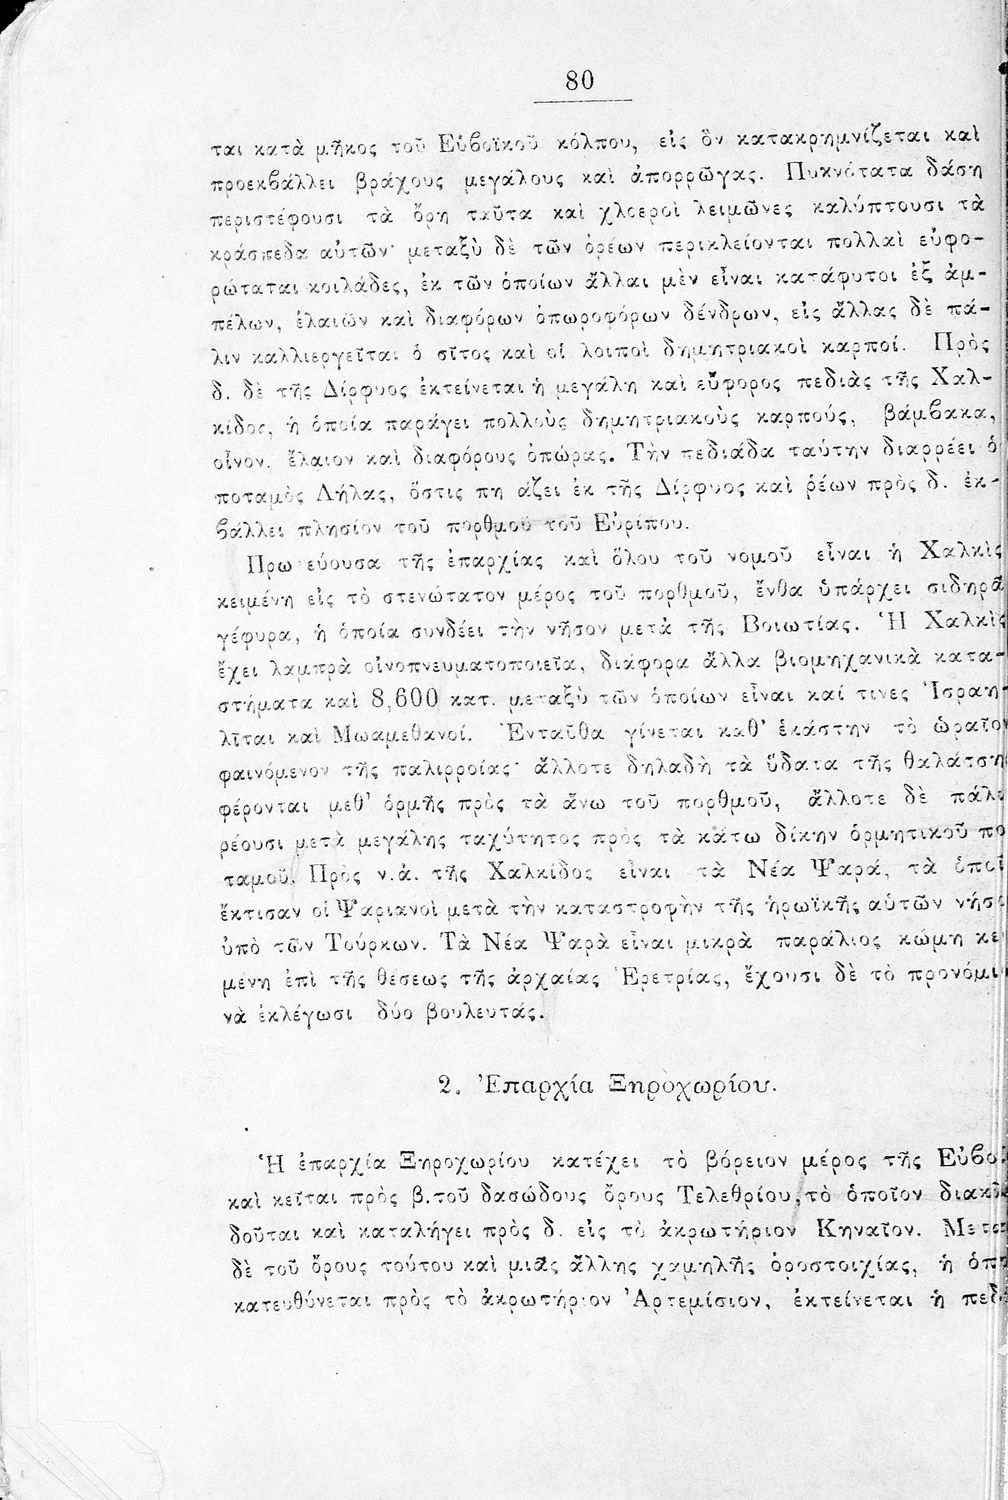 80
ται κατὰ μῆκος τοῦ Εὐβοϊκοῦ κόλπου, εἰς ὃν κατακρημνίζεται καὶ
προεκβάλλει βράχους μεγάλους καὶ ἀπορρῶγας. Πυκνότατα δάση
περιστέφουσι τὰ ὄρη ταῦτα καὶ χλοεροὶ λειμῶνες καλύπτουσι τὰ
κράσπεδα αὐτῶν· μεταξὺ δὲ τῶν ὀρέων περικλείονται πολλαὶ εὐφο-
ρώταται κοιλάδες, ἐκ τῶν ὁποίων ἄλλαι μὲν εἶναι κατάφυτοι ἐξ ἀμ-
πέλων, ἐλαιῶν καὶ διαφόρων ὀπωροφόρων δένδρων, εἰς ἄλλας δὲ πά-
λιν καλλιεργεῖται ὁ σῖτος καὶ οἱ λοιποὶ δημητριακοὶ καρποί. Πρὸς
δ. δὲ τῆς Δίρφυος ἐκτείνεται ἡ μεγάλη καὶ εὔφορος πεδιὰς τῆς Χαλ-
κίδος, ἡ ὁποία παράγει πολλοὺς δημητριακοὺς καρπούς, βάμβακα,
οἶνον, ἔλαιον καὶ διαφόρους ὀπώρας. Τὴν πεδιάδα ταύτην διαρρέει ὁ
ποταμὸς Λήλας, ὅστις πηγάζει ἐκ τῆς Δίρφυος καὶ ῥέων πρὸς δ. ἐκ-
βάλλει πλησίον τοῦ πορθμοῦ τοῦ Εὐρίπου.
Πρωτεύουσα τῆς ἐπαρχίας καὶ ὅλου τοῦ νομοῦ εἶναι ἡ Χαλκὶς
κειμένη εἰς τὸ στενώτατον μέρος τοῦ πορθμοῦ, ἔνθα ὑπάρχει σιδηρᾶ
γέφυρα, ἡ ὁποία συνδέει τὴν νῆσον μετὰ τῆς Βοιωτίας. Ἡ Χαλκὶς
ἔχει λαμπρὰ οἰνοπνευματοποιεῖα, διάφορα ἄλλα βιομηχανικὰ κατα-
στήματα καὶ 8,600 κατ. μεταξὺ τῶν ὁποίων εἶναι καί τινες Ἰσραη-
λῖται καὶ Μωαμεθανοί. Ἐνταῦθα γίνεται καθ' ἑκάστην τὸ ὡραῖον
φαινόμενον τῆς παλιρροίας· ἄλλοτε δηλαδὴ τὰ ὕδατα τῆς θαλάσση
φέρονται μεθ' ὁρμῆς πρὸς τὰ ἄνω τοῦ πορθμοῦ, ἄλλοτε δὲ πάλι
ρέουσι μετὰ μεγάλης ταχύτητος πρὸς τὰ κάτω δίκην ὁρμητικοῦ πο
ταμοῦ. Πρὸς ν.ἀ. τῆς Χαλκίδος εἶναι τὰ Νέα Ψαρά, τὰ ὁποῖ
ἔκτισαν οἱ Ψαριανοὶ μετὰ τὴν καταστροφὴν τῆς ἡρωϊκῆς αὐτῶν νήσ
ὑπὸ τῶν Τούρκων. Τὰ Νέα Ψαρὰ εἶναι μικρὰ παράλιος κώμη κε
μένη ἐπὶ τῆς θέσεως τῆς ἀρχαίας Ἐρετρίας, ἔχουσι δὲ τὸ προνόμι
νὰ ἐκλέγωσι δύο βουλευτάς.
2. Ἐπαρχία Ξηροχωρίου.
Ἡ ἐπαρχία Ξηροχωρίου κατέχει τὸ βόρειον μέρος τῆς Εὐβο
καὶ κεῖται πρὸς β. τοῦ δασώδους ὄρους Τελεθρίου, τὸ ὁποῖον διακλ
δοῦται καὶ καταλήγει πρὸς δ. εἰς τὸ ἀκρωτήριον Κηναῖον. Μετα
δὲ τοῦ ὄρους τούτου καὶ μιᾶς ἄλλης χαμηλῆς ὀροστοιχίας, ἡ ὁπο
κατευθύνεται πρὸς τὸ ἀκρωτήριον Ἀρτεμίσιον, ἐκτείνεται ἡ πεδ